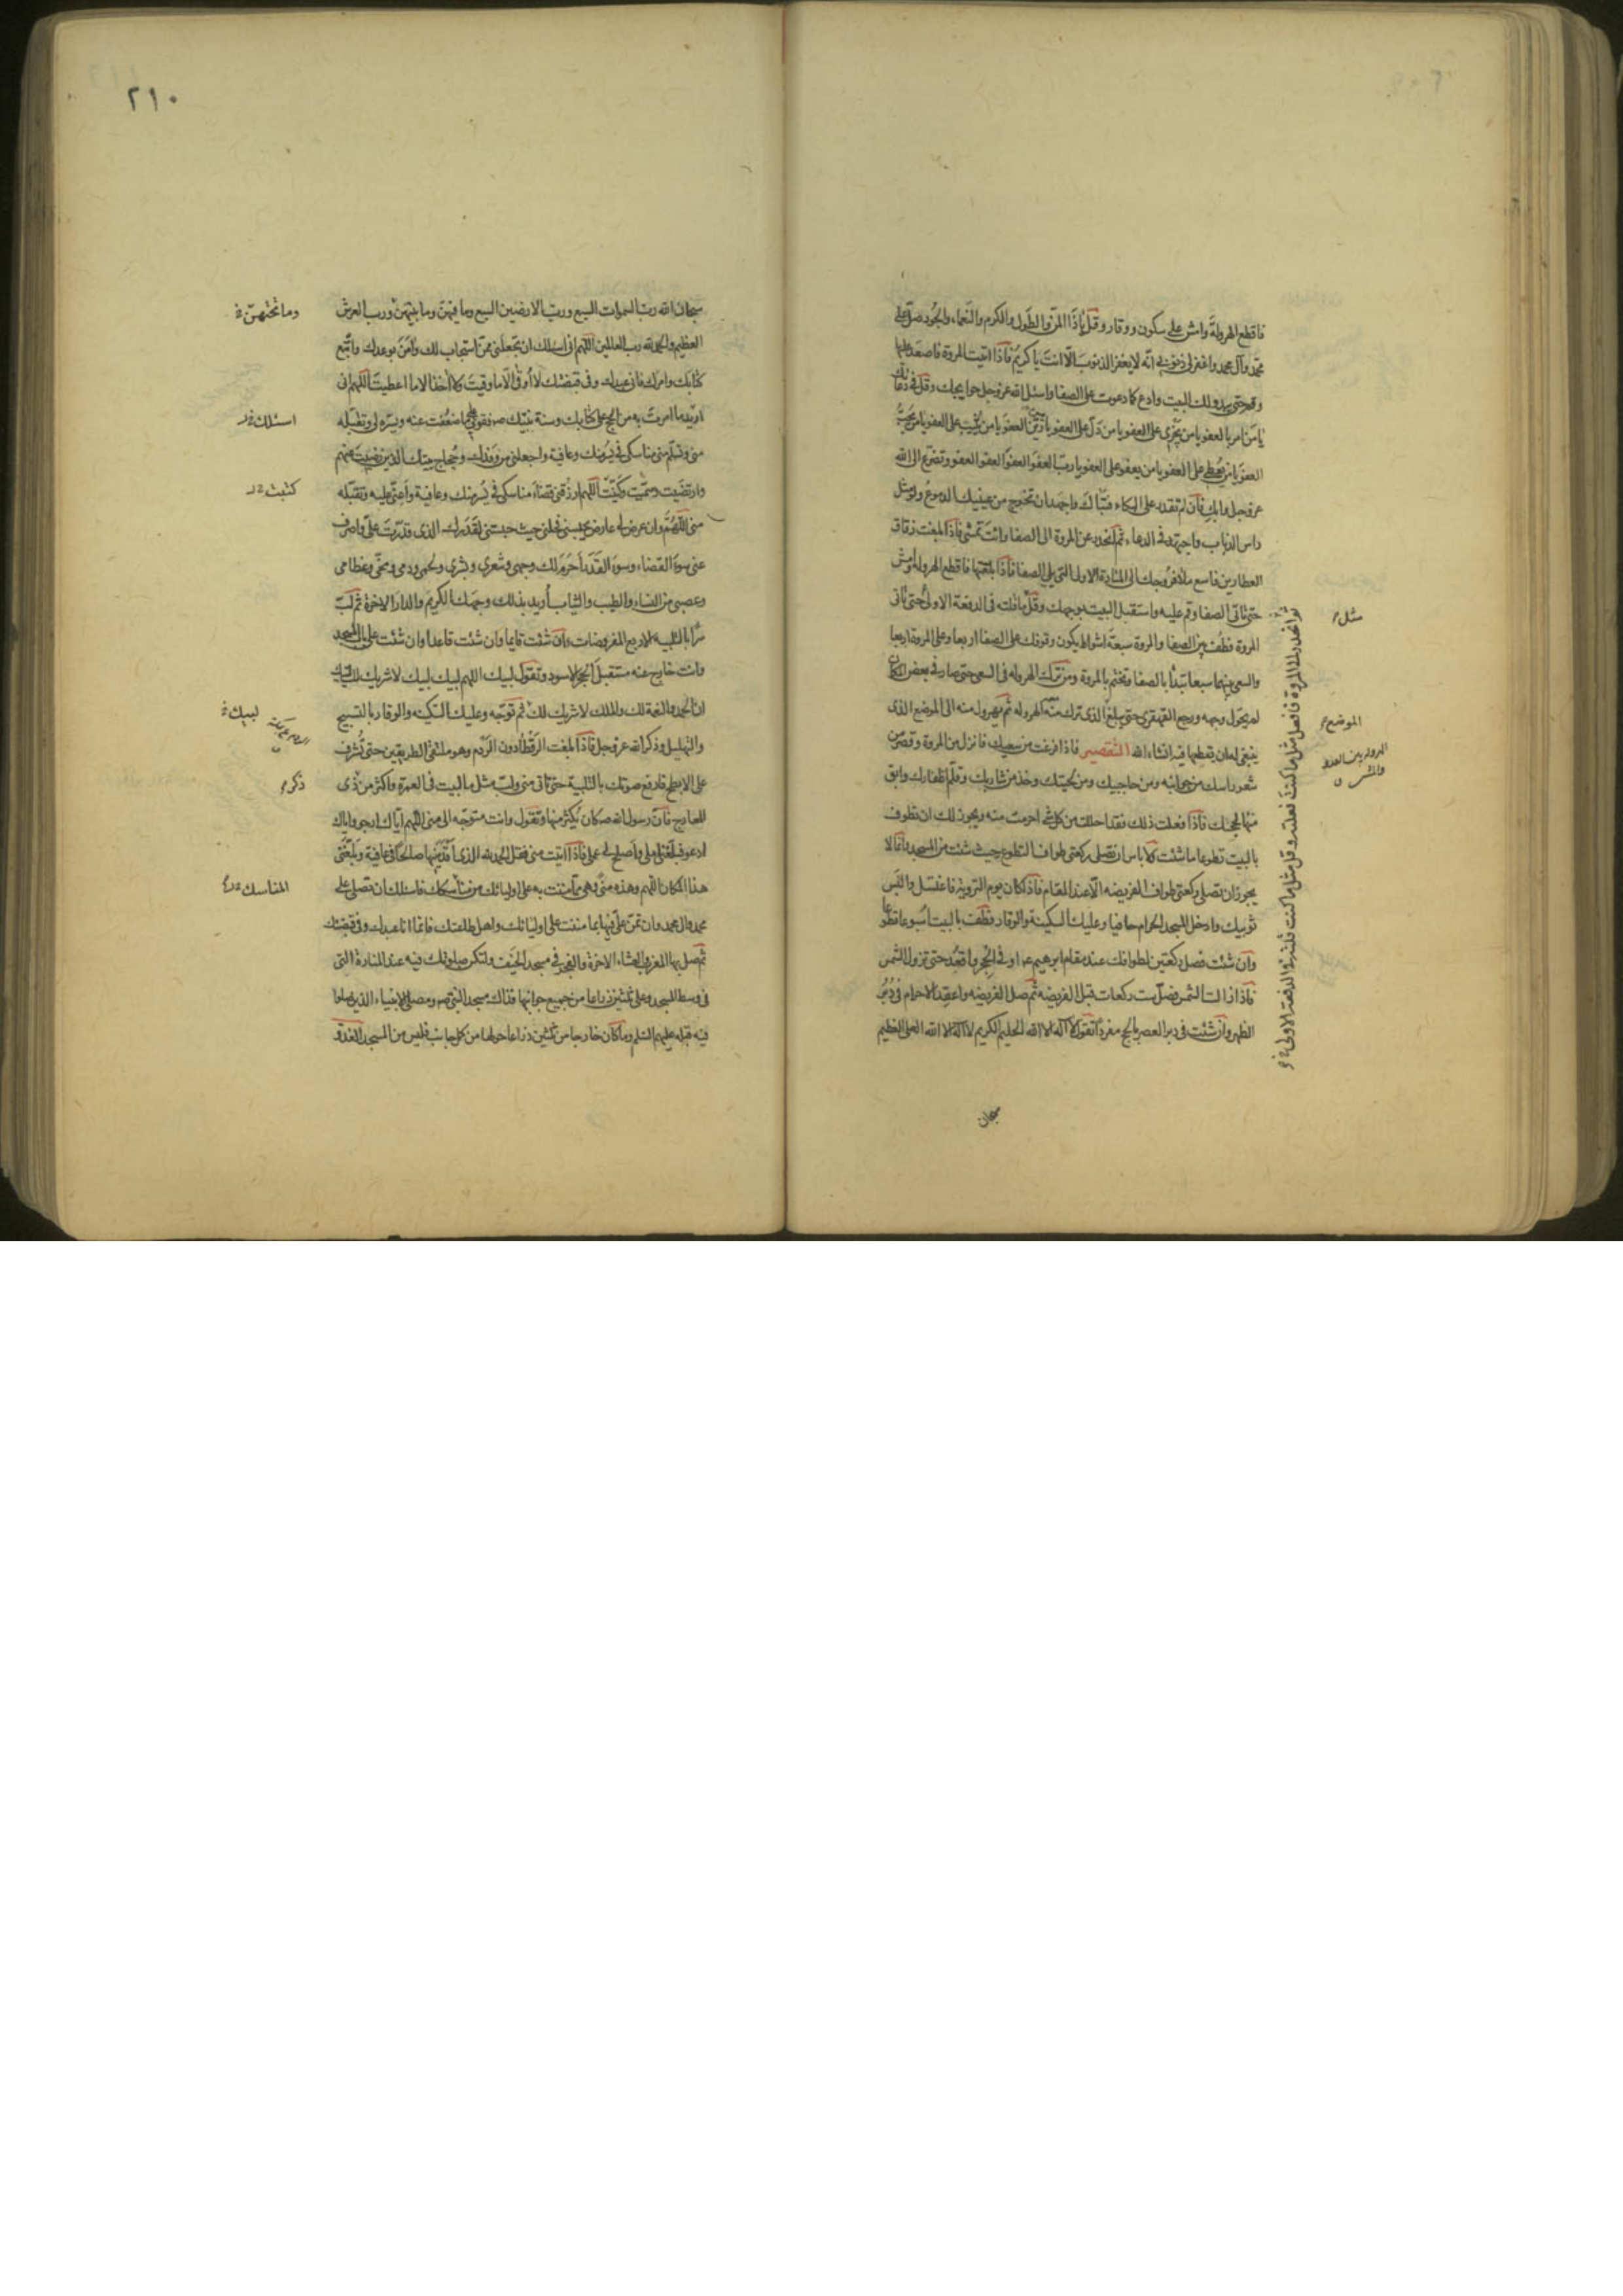 فاقطع الهرولة وامش على سكون ووقار وقل يا ذا المن والطول والكرم والنعماء والجود صل على
محمد وآل محمد واغفر لي ذنوبي انه لا يغفر الذنوب الا انت يا كريم فاذا اتيت المروة فاصعد عليها
وقم حتى يبدو لك البيت وادع كما دعوت على الصفا واسئل الله عز وجل حوايجك وقل في دعائك
يا من امر بالعفو يا من يجزي على العفو يا من دل على العفو يا من زين العفو يا من يثيب على العفو يا من يحب
العفو يا من يعطي على العفو يا من يعفو على العفو يا رب العفو العفو العفو العفو وتضرع الى الله
عز وجل وابك فان لم تقدر على البكاء فتباك واجهد ان تخرج من عينيك الدموع ولو مثل
راس الذباب واجتهد في الدعاء ثم انحدر عن المروة الى الصفا وانت تمشي فاذا بلغت زقاق
العطارين فاسع ملأ فروجك الى المنارة الاولى التي يلي الصفا فاذا بلغتها فاقطع الهرولة وامش
حتى تاتي الصفا وقم عليه واستقبل البيت بوجهك وقل ما قلته في الدفعة الاولى حتى تاتي
المروة فطف بين الصفا والمروة سبعة اشواط يكون وقوفك على الصفا اربعا وعلى المروة اربعا
والسعي بينهما سبعا تبدأ بالصفا وتختم بالمروة ومن ترك الهرولة في السعي حتى صار في بعض المكان
لم يحول وجهه ورجع القهقرى حتى يبلغ الذي ترك منه الهرولة ثم يهرول منه الى الموضع الذي
ينبغي له ان يقطعها فيه انشاء الله التقصير فاذا فرغت من سعيك فانزل من المروة وقصر من
شعر راسك من جوانبه ومن حاجبيك ومن لحيتك وخذ من شاربك وقلم اظفارك وابق
منها لحجك فاذا فعلت ذلك فقد احللت من كل شئ احرمت منه ويجوز لك ان تطوف
بالبيت تطوعا ما شئت فلا باس ان تصلي ركعتي طواف التطوع حيث شئت من المسجد وانما لا
يجوز ان تصلي ركعتي طواف الفريضة الا عند المقام فاذا كان يوم التروية فاغتسل والبس
ثوبيك وادخل المسجد الحرام حافيا وعليك السكينة والوقار فطف بالبيت اسبوعا تطوعا
وان شئت فصل ركعتين لطوافك عند مقام ابرهيم ع او في الحجر واقعد حتى تزول الشمس
فاذا زالت الشمس فصل ست ركعات قبل الفريضة ثم صل الفريضة واعقد الاحرام في دبر
الظهر وان شئت في دبر العصر بالحج مفردا تقول لا اله الا الله الحليم الكريم لا اله الا الله العلي العظيم
سبحان
مثل
الموضع
ثم انحدر الى المروة فافعل مثل ما كنت فعلته وقل مثل ما كنت قلته في الدفعة الاولى
٢١٠
سبحان الله رب السموات السبع ورب الارضين السبع وما فيهن وما بينهن ورب العرش
وما تحتهن
العظيم والحمد لله رب العالمين اللهم اني اسئلك ان تجعلني ممن استجاب لك وآمن بوعدك واتبع
كتابك وامرك فاني عبدك وفي قبضتك لا اوقى الا ما وقيت ولا آخذ الا ما اعطيت اللهم اني
اريد ما امرت به من الحج على كتابك وسنة نبيك ص فقوني على ما ضعفت عنه ويسره لي وتقبله
اسئلك
مني وتسلم مني مناسكي في يسر منك وعافية واجعلني من وفدك وحجاج بيتك الذين رضيت عنهم
وارتضيت وسميت وكنيت اللهم ارزقني قضاء مناسكي في يسر منك وعافية واعني عليه وتقبله
كتبت
مني اللهم وان عرض لي عارض يحبسني فحلني حيث حبستني لقدرك الذي قدرت علي واصرف
عني سوء القضاء وسوء القدر احرم لك وجهي وشعري وبشري ولحمي ودمي ومخي وعظامي
وعصبي من النساء والطيب والثياب أريد بذلك وجهك الكريم والدار الاخرة ثم لب
سرا بالتلبية الاربع المفروضات وان شئت قايما وان شئت قاعدا وان شئت على باب المسجد
وانت خارج عنه مستقبل الحجر الاسود وتقول لبيك اللهم لبيك لبيك لا شريك لك لبيك
ان الحمد والنعمة لك والملك لا شريك لك ثم توجه وعليك السكينة والوقار بالتسبيح
لبيك
والتهليل وذكر الله عز وجل فاذا بلغت الرقطاء دون الردم وهو ملتقى الطريقين حتى تشرف
على الابطح فارفع صوتك بالتلبية حتى تاتي منى ولب مثل ما لبيت في العمرة واكثر من ذي
ذكر
المعارج فان رسول الله ص كان يكثر منها وتقول وانت متوجه الى منى اللهم اياك ارجو واياك
ادعو فبلغني املي واصلح لي عملي فاذا اتيت منى فقل الحمد لله الذي اقدمنيها صالحا في عافية وبلغني
هذا المكان اللهم وهذه منى وهي مما مننت به على اوليائك من مناسكك فاسئلك ان تصلي على
المناسك
محمد وال محمد وان تمن علي فيها بما مننت على اوليائك واهل طاعتك فانما انا عبدك وفي قبضتك
ثم صل بها المغرب والعشاء الاخرة والفجر في مسجد الخيف ولتكن صلوتك فيه عند المنارة التي
في وسط المسجد وعلى ثلثين ذراعا من جميع جوانبها فذاك مسجد النبي ص ومصلى الانبياء الذين صلوا
فيه قبله عليهم السلم وما كان خارجا من ثلثين ذراعا حولها من كل جانب فليس من المسجد الغدو